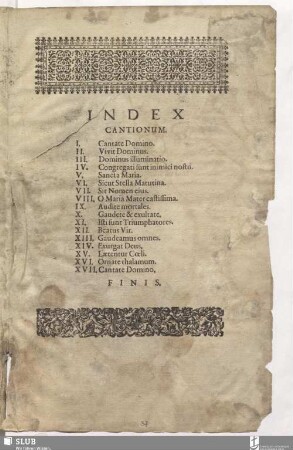 INDEX
CANTIONUM.
I. Cantate Domino.
II. Vivit Dominus.
III. Dominus illuminatio.
IV. Congregati sunt inimici nostri.
V. Sancta Maria.
VI. Sicut Stella Matutina.
VII. Sit Nomen ejus.
VIII. O Maria Mater castissima.
IX. Audite mortales.
X. Gaudete & exultate.
XI. Isti sunt Triumphatores.
XII. Beatus Vir.
XIII. Gaudeamus omnes.
XIV. Exurgat Deus.
XV. Lætentur Cœli.
XVI. Ornate thalamum.
XVII. Cantate Domino.
FINIS.
SLUB
Wir führen Wissen.